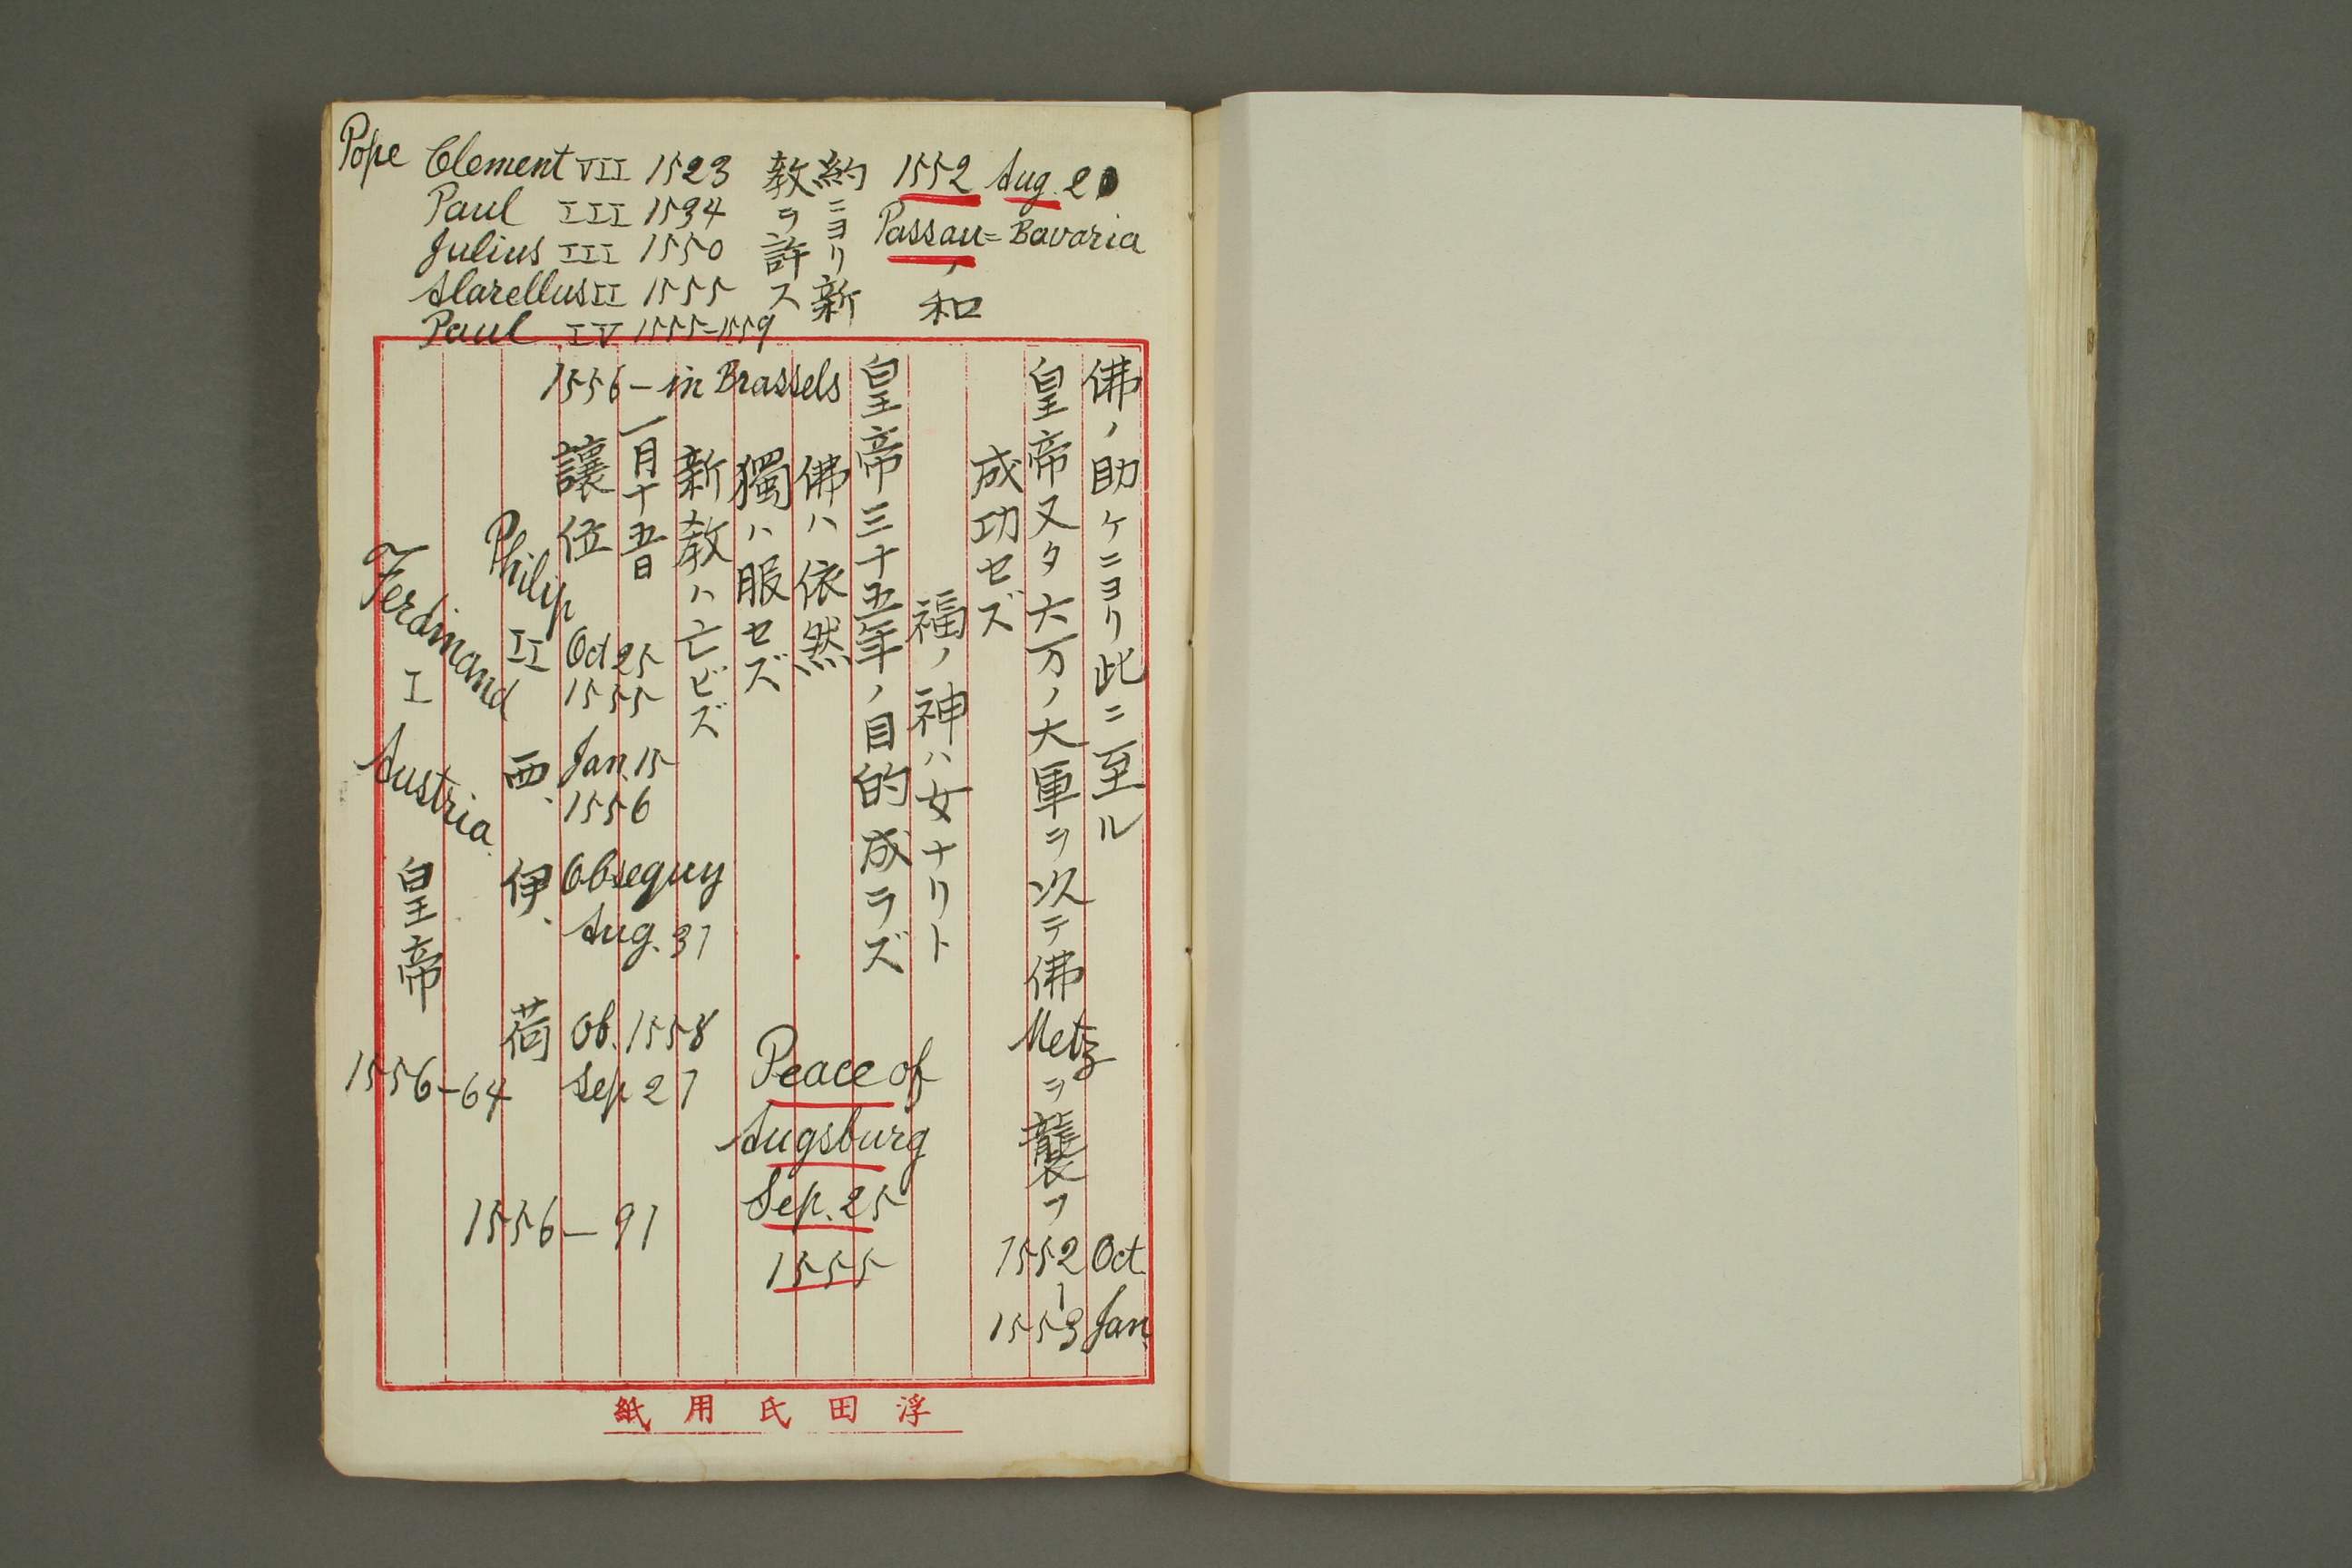 1552 Aug. 2
Passau = Bavaria
ノ和
約ニヨリ新
教ヲ許ス
Pope Clement VII 1523
Paul III 1534
Julius III 1550
Marellus II 1555
Paul IV 1555-1559
佛ノ助ケニヨリ此ニ至ル
皇帝又タ六万ノ大軍ヲ以テ佛Metzヲ襲フ
1552 Oct.
|
1553 Jan.
成功セズ
福ノ神ハ女ナリト
皇帝三十五年ノ目的成ラズ
佛ハ依然
獨ハ服セズ
新教ハ亡ビズ
Peace of
Augsburg
Sep. 25
1555
1556 - in Brassels
一月十五日
讓位
Oct 25
1555
Jan. 15
1556
Obsequy
Aug. 31
Ob. 1558
Sep 21
Philip II 西、伊、荷
1556 - 91
Ferdinand I Austria. 皇帝
1556-64
浮田氏用紙